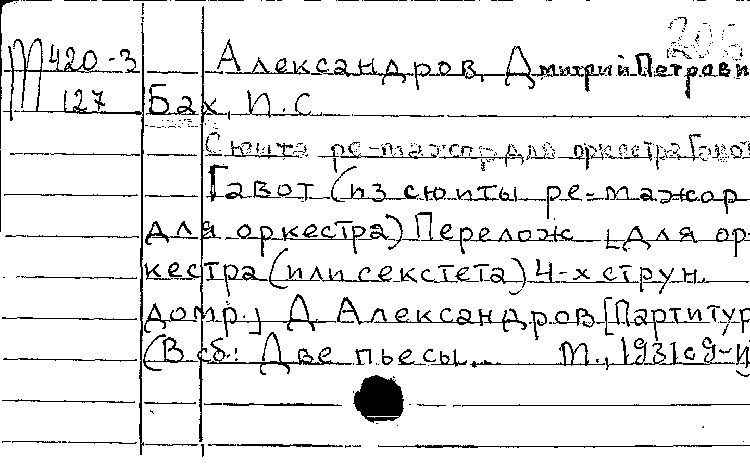 206
М420-3 Александров, Дмитрий Петрови
127 Бах, И.С.
Сюита ре-мажор для оркестра Гавот
Гавот (из сюиты ре-мажор
для оркестра) Перелож. [для ор-
кестра (или секстета) 4-х струн.
домр.] Д. Александров [Партитур
(В сб.: Две пьесы... М., 1931 с 9-